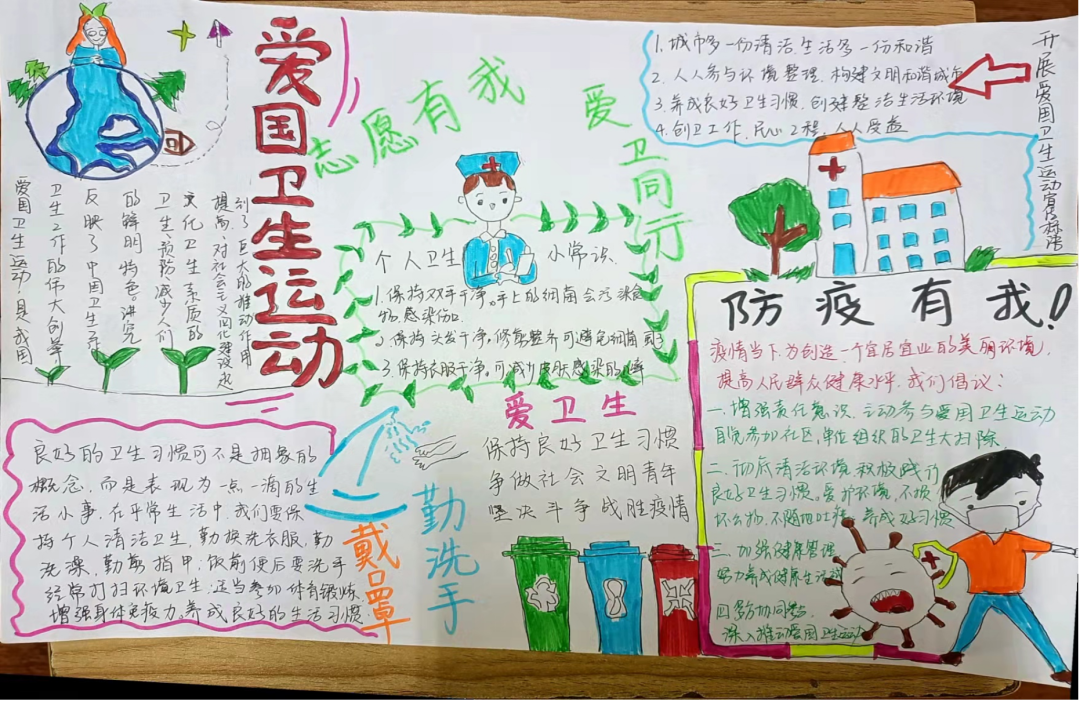 爱国卫生运动
志愿有我
爱卫同行
爱国卫生运动,具我国
卫生工作的伟大创举
反映了中国卫生工作
的鲜明特色。讲究
卫生、预防减少人们
文化卫生素质的
提高,对社会主义四化建设水
到了巨大的推动作用
个人卫生小常识、
1.保持双手干净。手上的细菌会污染食
物.感染伤口.
2.保持头发干净。修剪整齐可避免细菌
3.保持衣服干净。可减少皮肤感染的
1.城市多一份清洁.生活多一份和谐
2.人人参与环境整理.构建文明和谐城市
3.养成良好卫生习惯.创建整洁生活环境
4.创卫工作.民心工程.人人受益
开展爱国卫生运动宣传标语
防疫有我!
疫情当下.为创造一个宜居宜业的美丽环境.
提高人民群众健康水平.我们倡议:
一.增强责任意识.主动参与爱国卫生运动
自觉参加社区,单位组织的卫生大扫除
二.彻底清洁环境.积极践行
良好卫生习惯。爱护环境,不损
坏公物.不随地吐痰.养成好习惯
三.加强健康管理
努力养成健康生活
四.多方协同参
深入推动爱国卫生运动
良好的卫生习惯可不是抽象的
概念,而是表现为一点一滴的生
活小事,在平常生活中,我们要保
持个人清洁卫生,勤换洗衣服,勤
洗澡,勤剪指甲,饭前便后要洗手
经常打扫环境卫生,适当参加体育锻炼.
增强身体免疫力.养成良好的生活习惯
戴口罩
勤洗手
爱卫生
保持良好卫生习惯
争做社会文明青年
坚决斗争战胜疫情